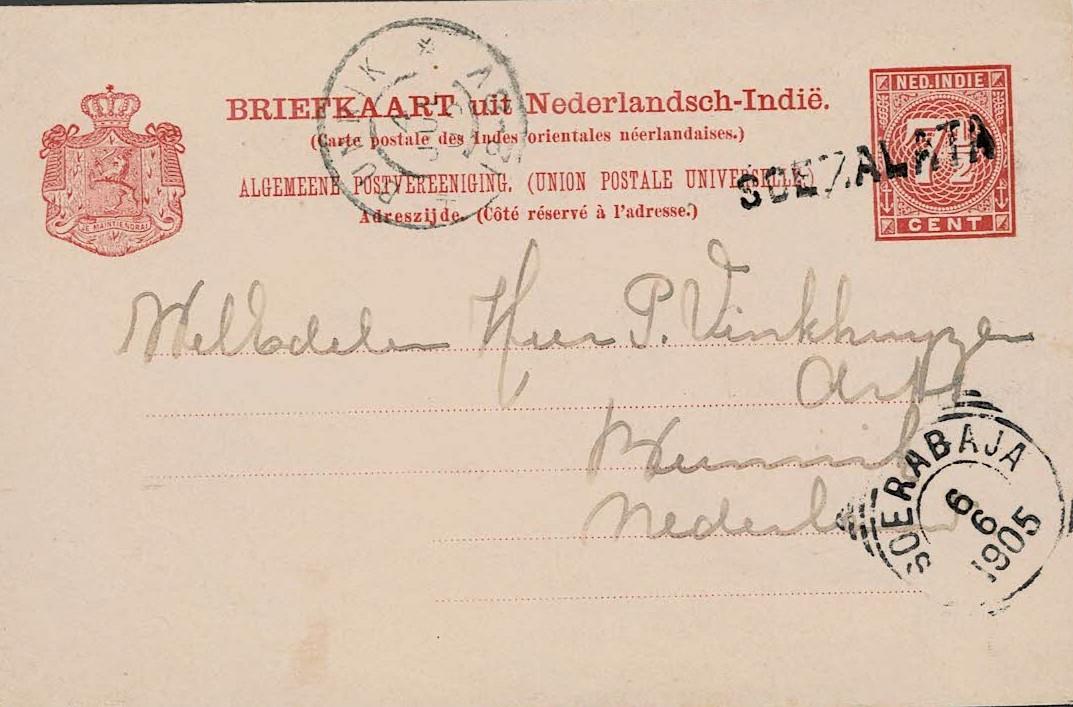 BRIEFKAART uit Nederlandsch-Indië.
(Carte postale des Indes orientales néerlandaises.)
ALGEMEENE POSTVEREENIGING. (UNION POSTALE UNIVERSELLE)
Adreszijde. (Côté réservé à l'adresse.)
JE MAINTIENDRAI
NED. INDIE
7½
CENT
SOEZALATA
BUNNIK
WelEdelen Heer P. Vinkhuyzen
Arts
Bunnik
Nederland
SOERABAJA
6
6
1905